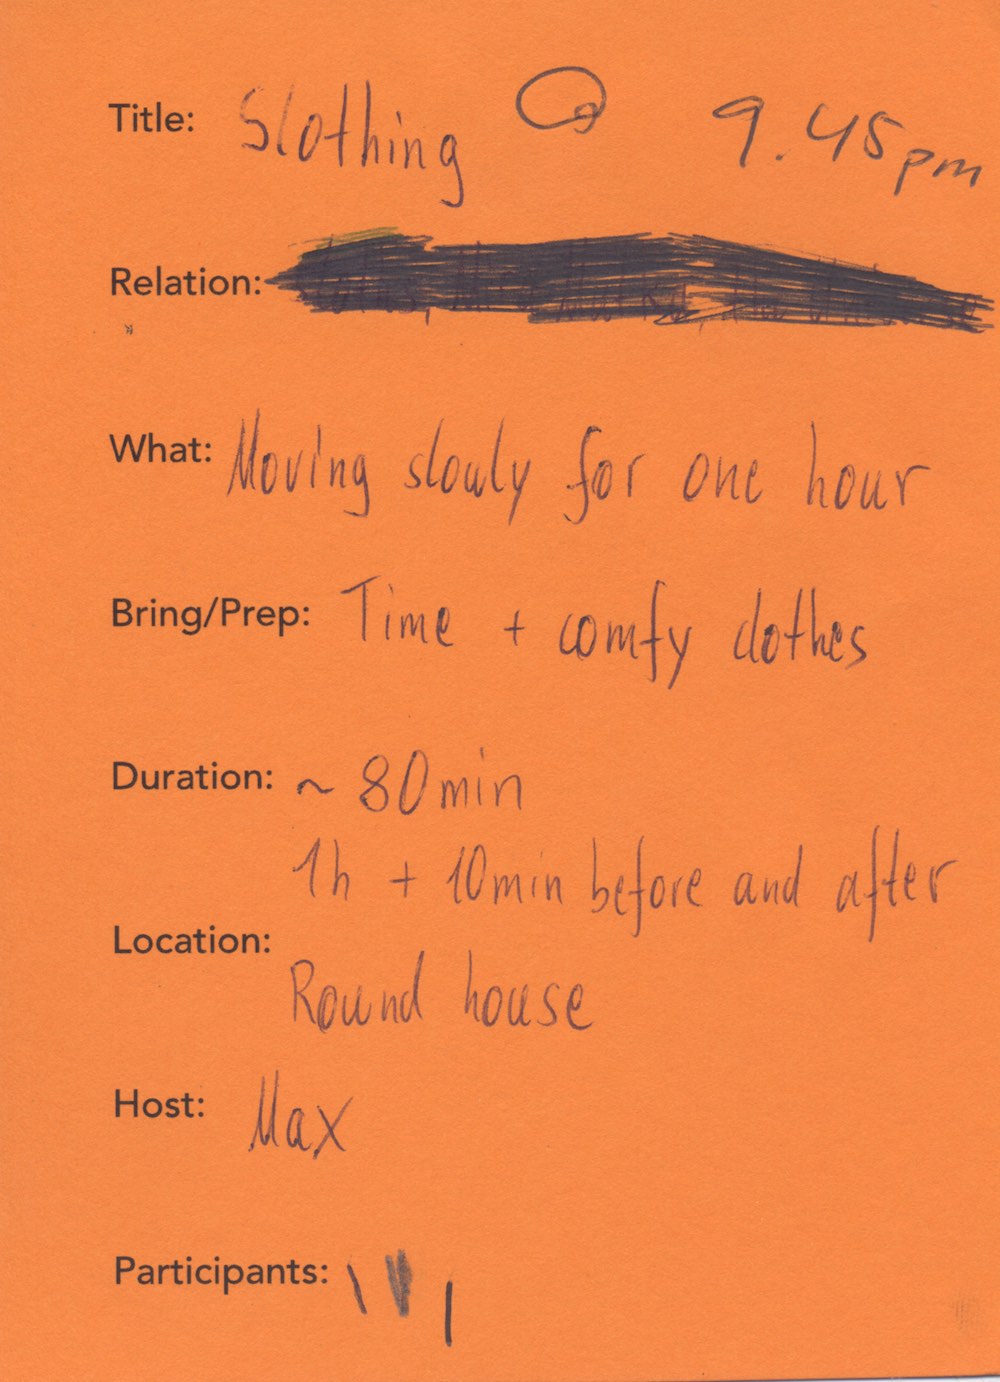 Title: Slothing @ 9.45pm
Relation:
What: Moving slowly for one hour
Bring/Prep: Time + comfy clothes
Duration: ~ 80min
1h + 10min before and after
Location:
Round house
Host: Max
Participants: